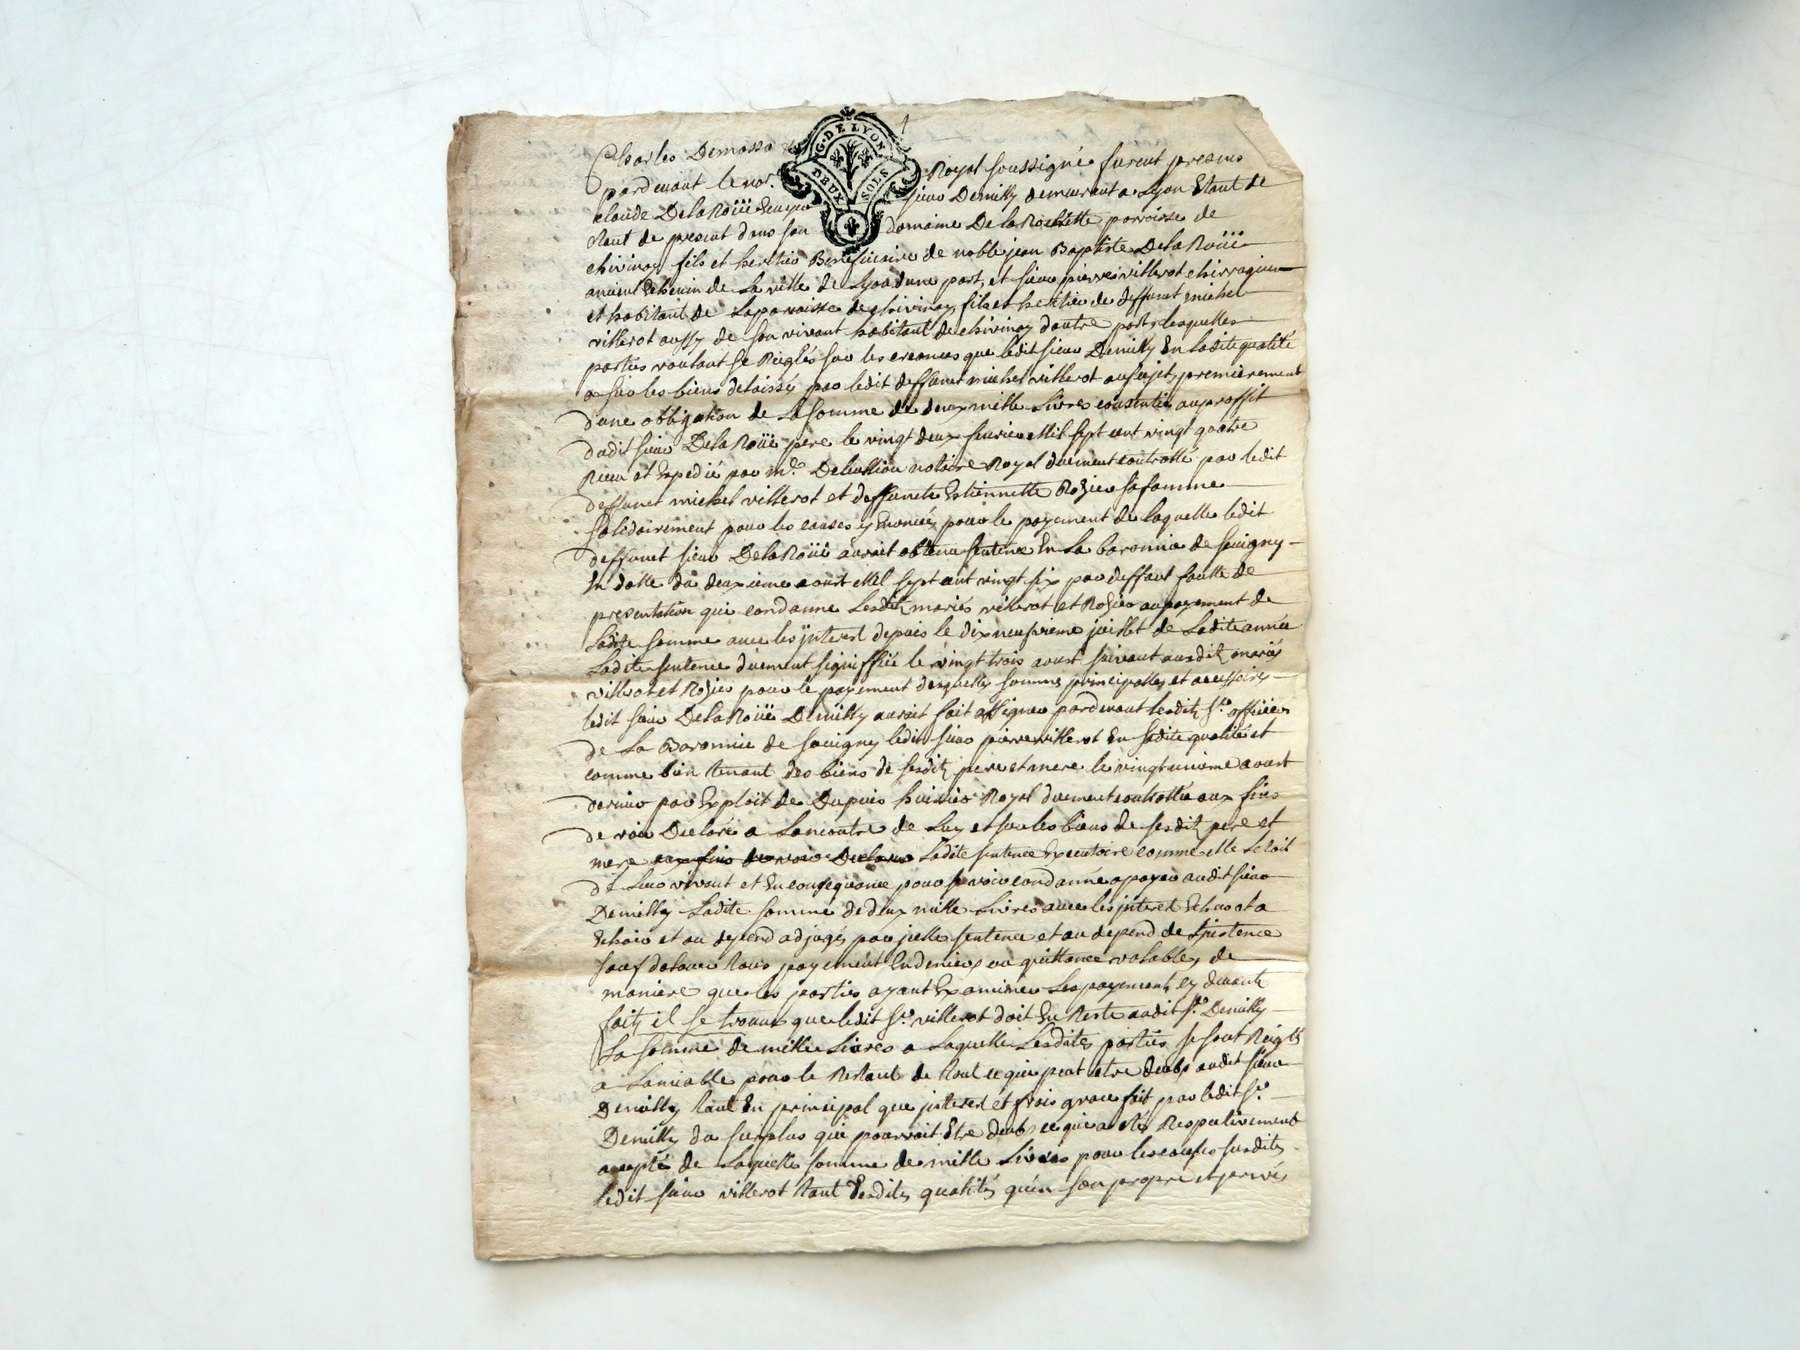 G. DE LYON
DEUX SOLS
Charles Demasso
pardevant le no.re Royal soussigné furent presens
claude DelaRoüe Ecuyer sieur Demilly demeurant a Lyon Etant de
tant de present dans son domaine De la Rochette parroisse de
chivinay fils et heritier Beneficiaire de noble jean Baptiste DelaRoüe
ancien Echevin de La ville de Lyon dune part, et sieur pierre villerot chirurgien
et habitant de La paroisse de chivinay fils et heritier de deffunt michel
villerot aussy de son vivant habitant de chivinay dautre part, lesquelles
parties voulant se Reigler sur les creances que ledit sieur Demilly En ladite qualité
a sur les biens delaissés par ledit deffunt michel villerot au sujet, premierement
dune obligation de La somme de deux mille Livres consentie au proffit
dudit sieur DelaRoüe pere le vingt deux feuvrier Mil sept cent vingt quatre
Receu et Expedié par m.e notaire Royal duement controllé par ledit
deffunt michel villerot et deffunte Estiennette Rozier sa famme
solidairement pour les causes y Enoncés pour le payement de laquelle ledit
deffunt sieur DelaRoüe auroit obtenu sentence En La baronnie de sauigny
En datte du deuxieme aoust Mil sept cent vingt six par deffaut faute de
presentation qui condanne Lesdits mariés villerot et Rozier au payement de
Ladite somme avec les jnterest depuis le dixneufvieme juillet de Ladite année
Ladite sentence duement signiffiée le vingt trois aoust suivant ausdits mariés
villerot et Rozier pour le payement desquelles sommes principalles et accessoires
ledit sieur DelaRoüe Demilly auroit fait assigner pardevant lesdits srs officiers
de La Baronnie de sauigny ledit sieur pierre villerot En sadite qualité et
comme bien tenant des biens de sesdits pere et mere le vingtunieme aoust
dernier par Exploit de Dupuis huissier Royal duement controllé aux fins
de voir Declaré a Lancontre de Luy et sur les biens de sesdits pere et
mere aux fins de voir Declarer Ladite sentence Executoire comme elle Letoit
de leur vivant et En consequance pour se voir condanné a payer audit sieur
Demilly Ladite somme de deux mille Livres avec les jnterest Echus et a
Echoir et au depend adjugés par jcelle sentence et au depend de Linstence
sauf deduire tous payement En deniers ou quittance valables, de
maniere que les parties ayant Examiné Les payements cy devant
faits il se trouve que ledit sr. villerot doit En Reste audit sr. Demilly
La somme de mille Livres a Laquelle Lesdites parties se sont Reiglés
a Lamiable pour le Restant de tout ce qui peut etre deub audit sieur
Demilly tant En principal que jnterest et frais grace fait par ledit sr.
Demilly du surplus qui pourroit Etre deub ce qui a Eté Respectivement
accepté de Laquelle somme de mille Livres pour les causes susdites
ledit sieur villerot tant Esdites qualités quen son propre et privé